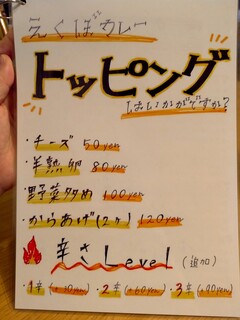 えくぼカレー
トッピング
はいかがですか?
・チーズ 50yen
・半熟卵 80yen
・野菜炒め 100yen
・からあげ(2ヶ) 120yen
辛さLevel (追加)
・1辛(+30yen) ・2辛(+60yen) 3辛(+90yen)